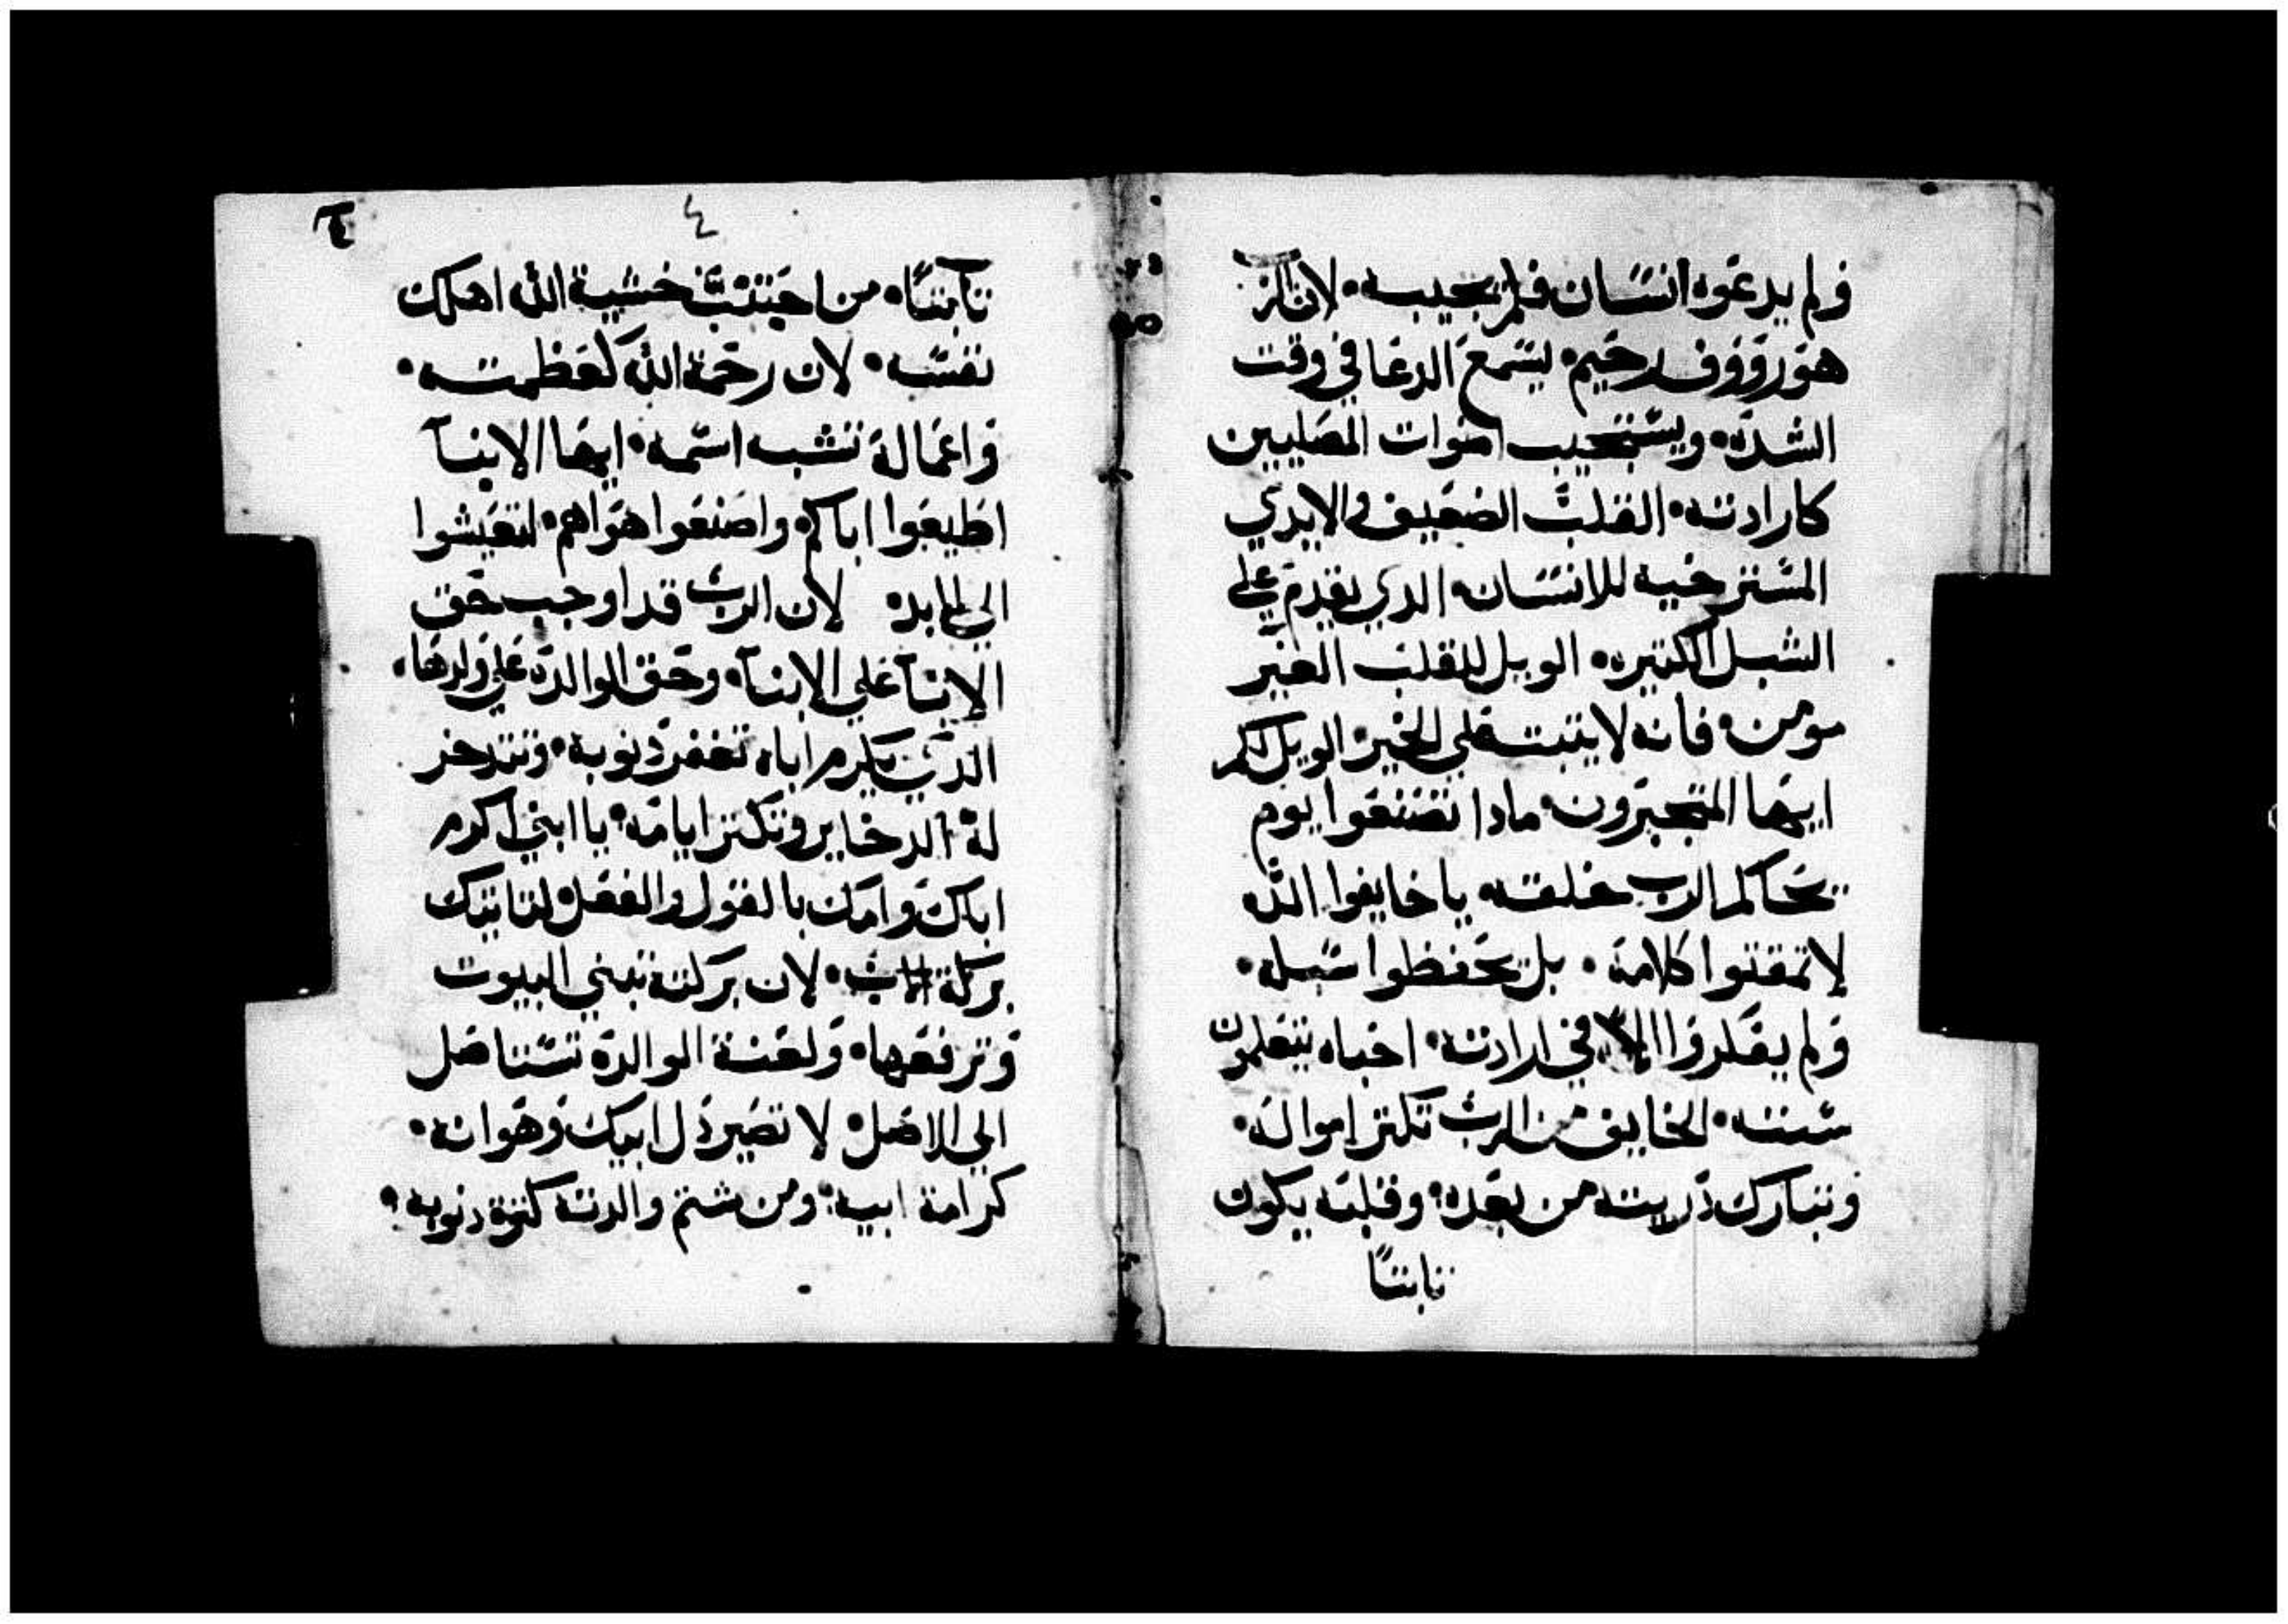 ولم يدعوه انسان فلم يجيبه لان الرب
هو رووف رحيم ليسمع الدعا في وقت
الشده ويستجيب اصوات المصليين
كارادته القلب الضعيف والايدي
المسترخيه للانسان الدي يقدم علي
السبل الكتيره الويل للقلب الغير
مومن فانه لا يتبت علي الخير الويل لكم
ايها المتجبرون مادا تصنعوا يوم
يحاكم الرب خلقته يا خايفوا الله
لا تمقتوا كلامه بل تحفظوا سبله
ولم يفكروا الا في ارادته احباه يتعلمون
سننه الخايف من الرب تكتر امواله
وتبارك دريته من بعده وقلبه يكون
تابتاً
٤
تابتاً من اجتنب خشية الله اهلك
نفسه لان رحمة الله كعظمته
واعماله تشبه اسمه ايها الابنا
اطيعوا اباكم واصنعوا هواهم لتعيشوا
الي الابد لان الرب قد اوجب حق
الابآ علي الابنآ وحق الوالده علي ولدها
الدي يكرم اباه تغفر دنوبه وتتدخر
له الدخاير وتكتر ايامه يا ابني اكرم
اباك وامك بالقول والفعل لتاتيك
بركة الاب لان بركته تبني البيوت
وترفعها ولعنة الوالدة تستاصل
الي الاصل لا تصير دل ابيك وهوانه
كرامة ابيه ومن شتم والدته كترة دنوبه